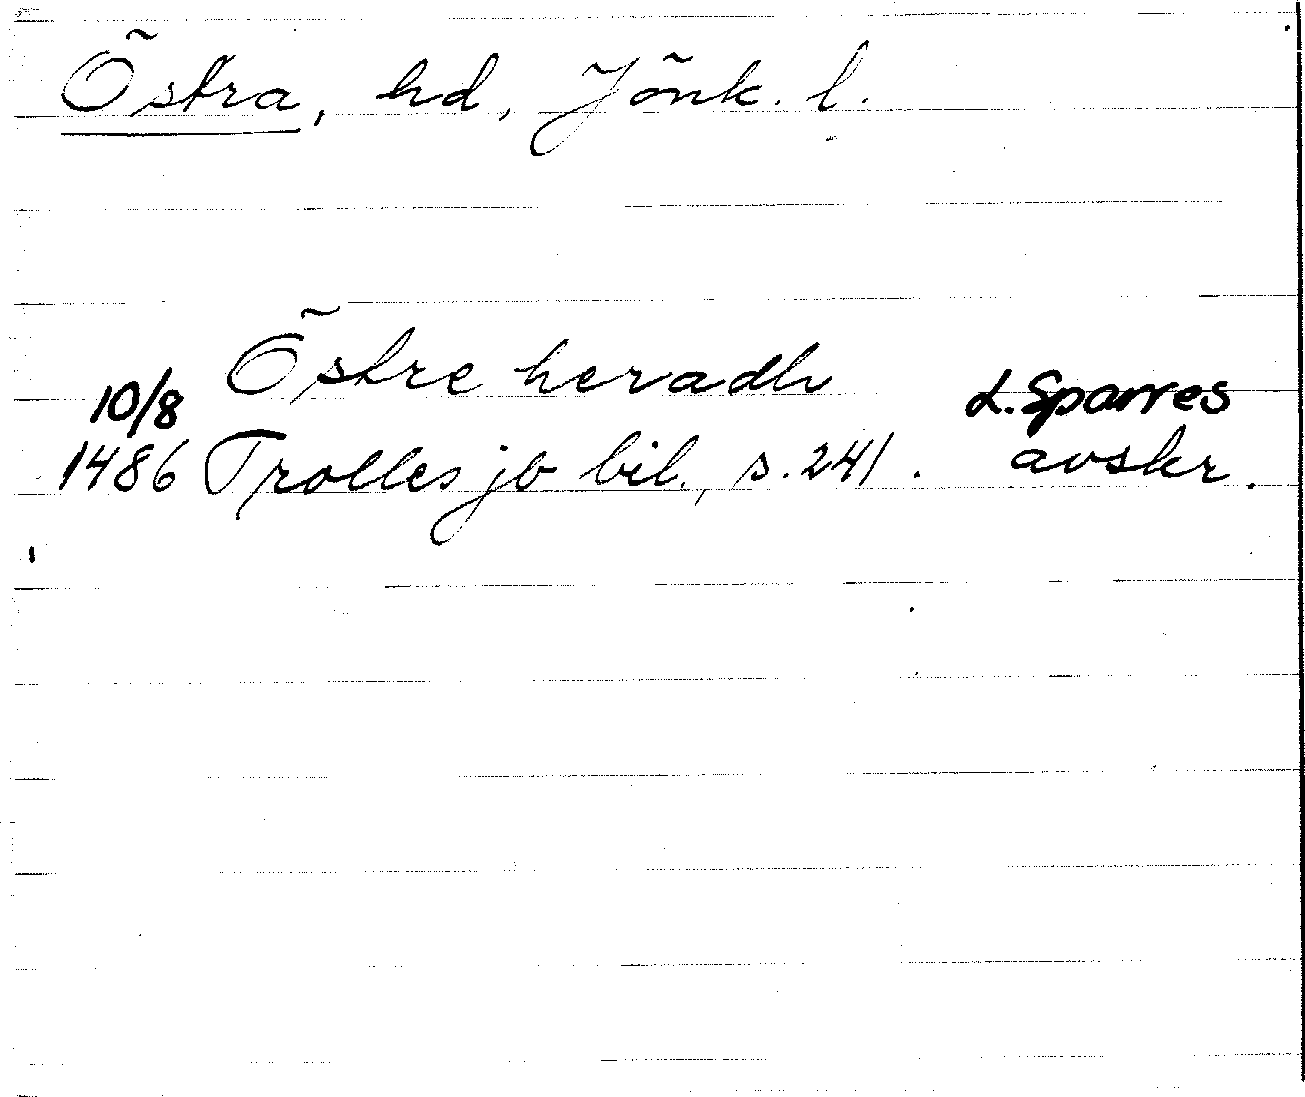 Östra, hd, Jönk. l.
Östre heradh
10/8 L. Sparres
1486 Trolles jb bil., s. 241. avskr.